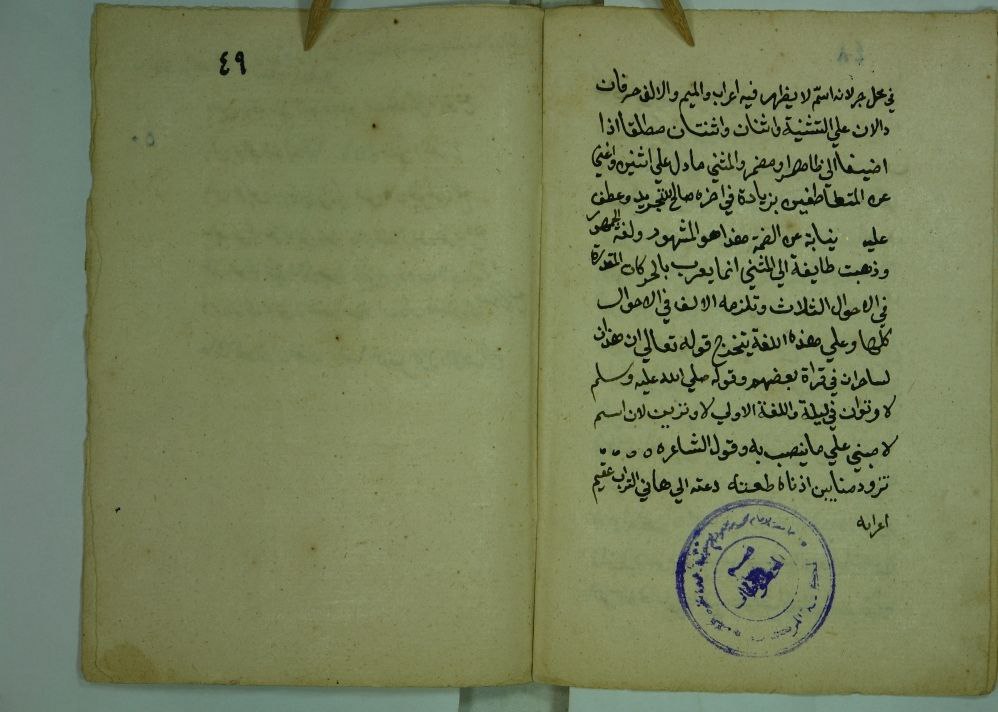 ٤٨
في محل جر لانه اسم لا يظهر فيه اعراب والميم والالف حرفان
دالان علي التثنية واثنان واثنتان مطلقا اذا
اضيفا الي ظاهر او مضمر والمثني ما دل علي اثنين واغني
عن المتعاطفين بزيادة في اخره صالح للتجريد وعطف
عليه نيابة عن الضمة هذا هو المشهور ولغة الجمهور
وذهبت طايفة الي المثني انما يعرب بالحركات المقدرة
في الاحوال الثلاث وتلزمه الالف في الاحوال
كلها وعلي هذه اللغة يتخرج قوله تعالي ان هذان
لساحران في قراة بعضهم وقوله صلي الله عليه وسلم
لا وتران في ليلة واللغة الاولي لا وترين لان اسم
لا مبني علي ما ينصب به وقول الشاعره
تزود منا بين اذناه طعنة دعته الي هابي التراب عقيم
اعرابه
٤٩